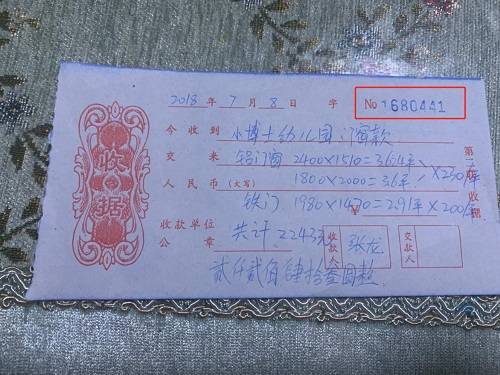 2018 年 7 月 8 日 字 No 1680441
今收到 小博士幼儿园 门窗款
交来 铝门窗 2400×1510=3.64平
人民币(大写) 1800×2000=3.6平 ×230/平
铁门 1980×1470=2.91平×200/平
收款单位公章 共计 2243元 收款人 张龙 交款人
贰仟贰佰肆拾叁圆整
收据
第二联 收据